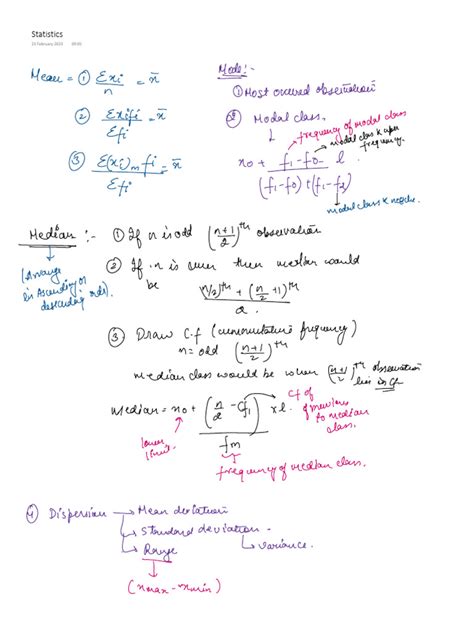 Statistics
23 February 2023 09:05
Mean = ① Σxi / n = x̄
② Σxifi / Σfi = x̄
③ Σ(xi)m fi / Σfi = x̄
Mode:-
① Most occured observation
② Modal class.
frequency of modal class
modal class k upar
frequency.
x0 + (f1-f0 / (f1-f0)+(f1-f2)) l
modal class k neeche.
Median :-
(Arrange
in Ascending or
descending order).
① If n is odd (n+1/2)th observation
② If n is even then median would
be (n/2)th + (n/2 +1)th / 2.
③ Draw C.f (cummutative frequency)
n = odd (n+1/2)th
median class would be when (n+1/2)th observation
lies in Cf
median = x0 + (n/2 - Cf1) / fm x l.
lower
limit
Cf of
previous
to median
class.
frequency of median class.
④ Dispersion → Mean deviation
→ Standard deviation -
→ variance.
→ Range
(xmax - xmin)